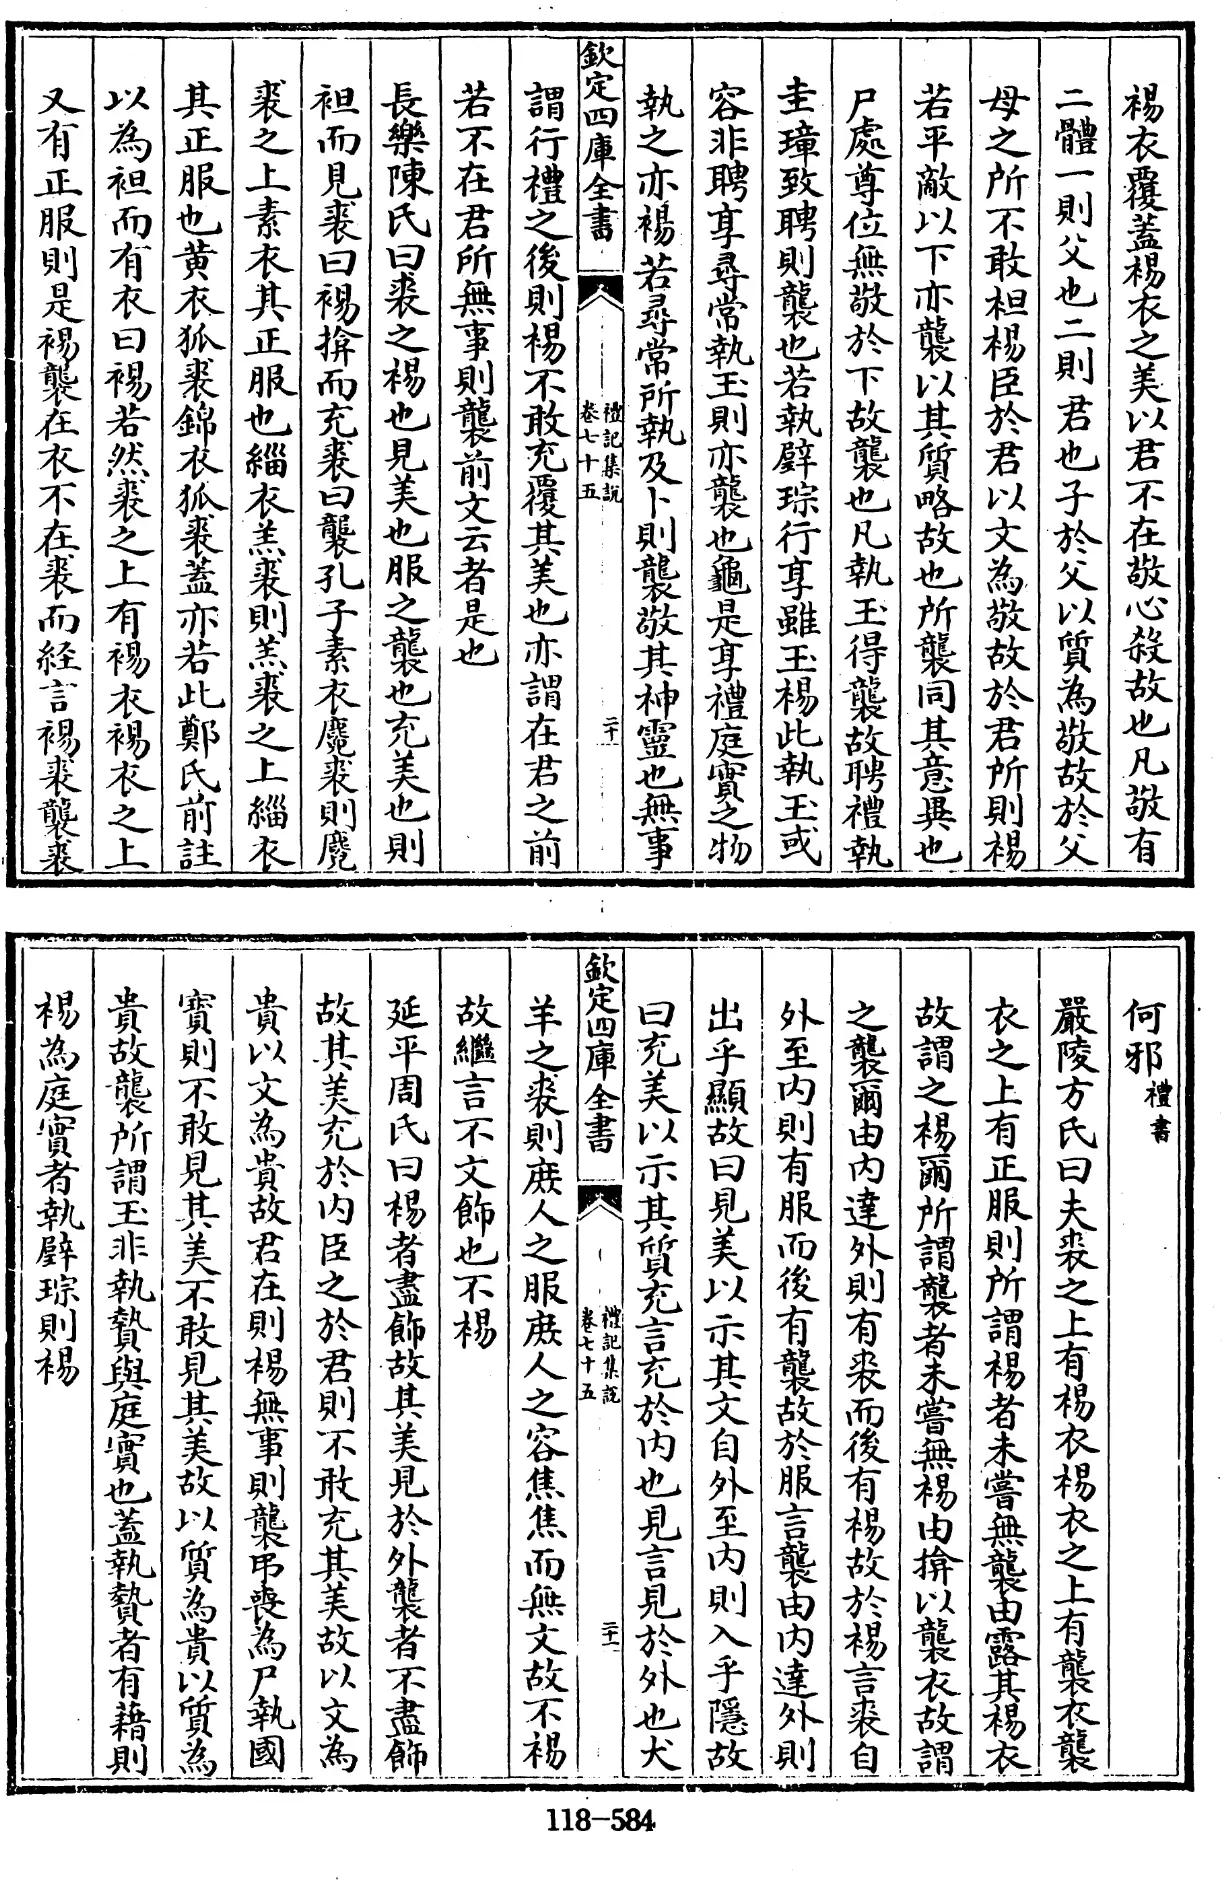 裼衣覆蓋裼衣之美以君不在敬心殺故也凡敬有
二體一則父也二則君也子於父以質為敬故於父
母之所不敢袒裼臣於君以文為敬故於君所則裼
若平敵以下亦襲以其質略故也所襲同其意異也
尸處尊位無敬於下故襲也凡執玉得襲故聘禮執
圭璋致聘則襲也若執璧琮行享雖玉裼此執玉或
容非聘享尋常執玉則亦襲也龜是享禮庭實之物
執之亦裼若尋常所執及卜則襲敬其神靈也無事
欽定四庫全書
禮記集說
卷七十五
二十
謂行禮之後則裼不敢充覆其美也亦謂在君之前
若不在君所無事則襲前文云者是也
長樂陳氏曰裘之裼也見美也服之襲也充美也則
袒而見裘曰裼揜而充裘曰襲孔子素衣麑裘則麑
裘之上素衣其正服也緇衣羔裘則羔裘之上緇衣
其正服也黃衣狐裘錦衣狐裘蓋亦若此鄭氏前註
以為袒而有衣曰裼若然裘之上有裼衣裼衣之上
又有正服則是裼襲在衣不在裘而経言裼裘襲裘
何邪禮書
嚴陵方氏曰夫裘之上有裼衣裼衣之上有襲衣襲
衣之上有正服則所謂裼者未嘗無襲由露其裼衣
故謂之裼爾所謂襲者未嘗無裼由揜以襲衣故謂
之襲爾由内達外則有裘而後有裼故於裼言裘自
外至内則有服而後有襲故於服言襲由内達外則
出乎顯故曰見美以示其文自外至内則入乎隱故
曰充美以示其質充言充於内也見言見於外也犬
欽定四庫全書
禮記集說
卷七十五
二十一
羊之裘則庶人之服庶人之容焦焦而無文故不裼
故繼言不文飾也不裼
延平周氏曰裼者盡飾故其美見於外襲者不盡飾
故其美充於内臣之於君則不敢充其美故以文為
貴以文為貴故君在則裼無事則襲弔喪為尸執國
寶則不敢見其美不敢見其美故以質為貴以質為
貴故襲所謂玉非執贄與庭實也蓋執贄者有藉則
裼為庭實者執璧琮則裼
118-584